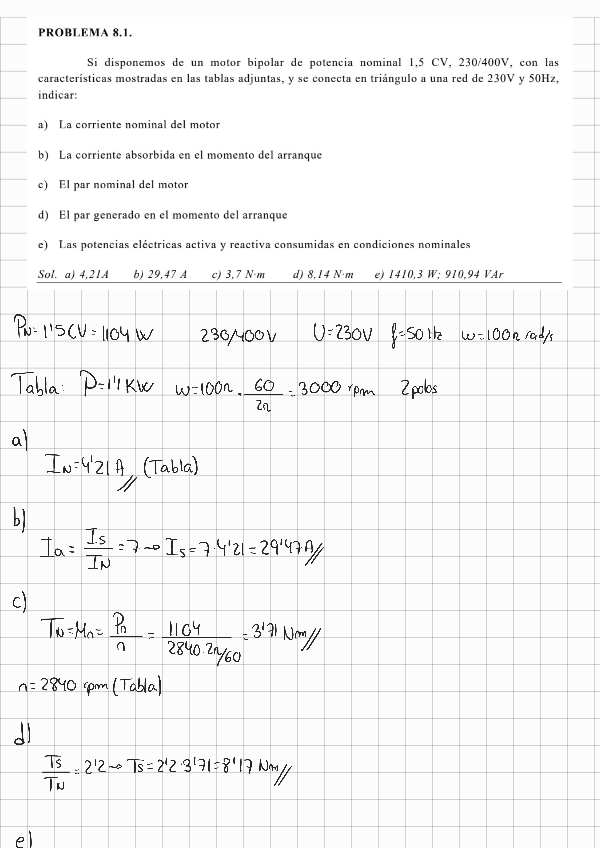 PROBLEMA 8.1.
Si disponemos de un motor bipolar de potencia nominal 1,5 CV, 230/400V, con las
características mostradas en las tablas adjuntas, y se conecta en triángulo a una red de 230V y 50Hz,
indicar:
a) La corriente nominal del motor
b) La corriente absorbida en el momento del arranque
c) El par nominal del motor
d) El par generado en el momento del arranque
e) Las potencias eléctricas activa y reactiva consumidas en condiciones nominales
Sol. a) 4,21A b) 29,47 A c) 3,7 N·m d) 8,14 N·m e) 1410,3 W; 910,94 VAr
PN=1'5CV=1104 W 230/400V U=230V f=50Hz w=100π rad/s
Tabla: P=1'1KW w=100π · 60/2π = 3000 rpm 2polos
a)
IN=4'21 A // (Tabla)
b)
Ia = Is/IN = 7 → Is = 7·4'21 = 29'47A //
c)
TN=Mn= Pn/n = 1104/2840·2π/60 = 3'71 Nm //
n= 2840 rpm (Tabla)
d)
Ts/TN = 2'2 → Ts = 2'2·3'71 = 8'17 Nm //
e)